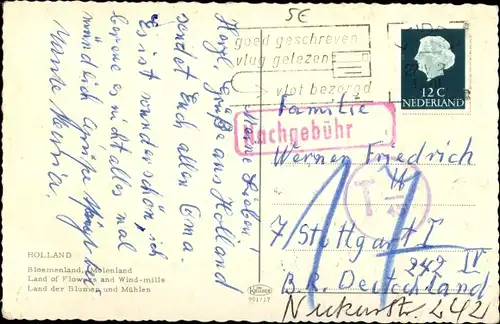 5€
goed geschreven
vlug gelezen
vlot bezorgd
12 C
NEDERLAND
Nachgebühr
T
Familie
Werner Friedrich
7/Stuttgart I
242 IV
B.R. Deutschland
Neckarstr. 242
11
Meine Lieben!
Herzl. Grüße aus Holland
sendet Euch allen Oma.
Es ist wunderschön, ich
bereue es nicht alles mal
mündlich Grüße
Tante Maria.
HOLLAND
Bloemenland, Molenland
Land of Flowers and Wind-mills
Land der Blumen und Mühlen
991/17